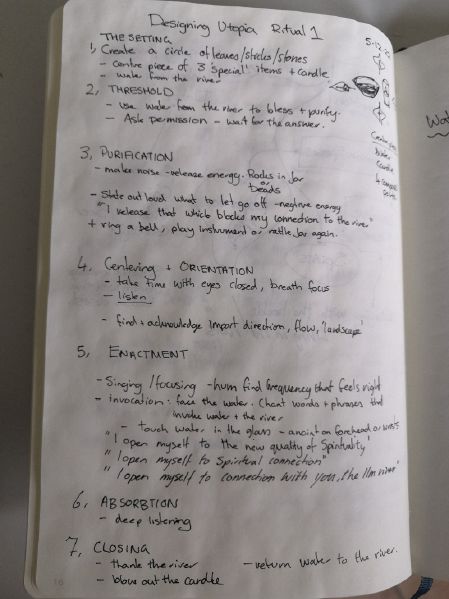 Designing Utopia Ritual 1
THE SETTING
1, Create a circle of leaves/sticks/stones
- centre piece of 3 'special' items + candle
- water from the river
2, THRESHOLD
- use water from the river to bless + purify.
- Ask permission - wait for the answer.
3, PURIFICATION
- make noise - release energy. Rocks in jar
or
beads
- State out loud what to let go off - negative energy
"I release that which blocks my connection to the river"
+ ring a bell, play instrument or rattle jar again.
4. Centering + ORIENTATION
- take time with eyes closed, breath focus
- listen
- find + acknowledge import direction, flow, 'landscape'
5, ENACTMENT
- Singing/focusing - hum find frequency that feels right
- invocation: face the water. Chant words + phrases that
invoke water + the river
- touch water in the glass - anoint on forehead or wrists
"I open myself to the new quality of Spirituality"
"I open myself to Spiritual connection"
"I open myself to connection with you, the river"
6, ABSORBTION
- deep listening
7, CLOSING
- thank the river
- return water to the river.
- blow out the candle
5-12
candle
Wat
16